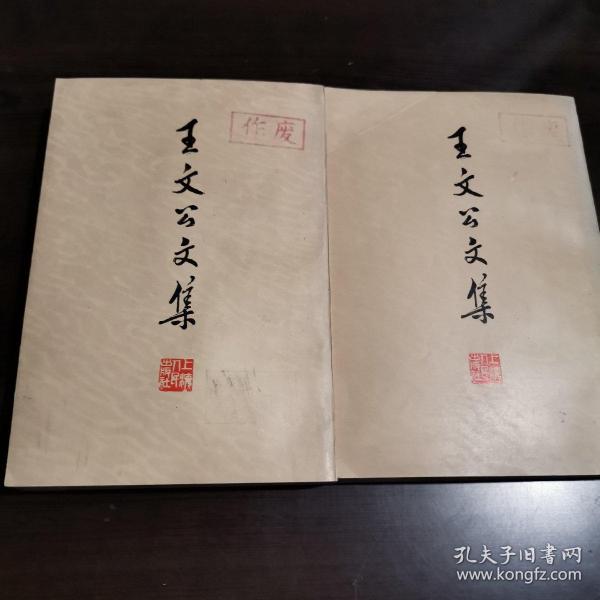 作废
王文公文集
上海人民出版社
王文公文集
上海人民出版社
孔夫子旧书网
www.kongfz.com